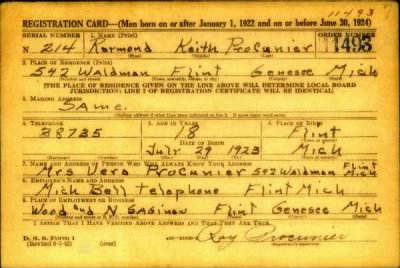 11493
REGISTRATION CARD—(Men born on or after January 1, 1922 and on or before June 30, 1924)
SERIAL NUMBER 1. NAME (Print) ORDER NUMBER
N 214 Raymond Keith Procunier 11493
(First) (Middle) (Last)
2. PLACE OF RESIDENCE (Print)
542 Waldman Flint Genesee Mich
(Number and street) (Town, township, village, or city) (County) (State)
[THE PLACE OF RESIDENCE GIVEN ON THE LINE ABOVE WILL DETERMINE LOCAL BOARD
JURISDICTION; LINE 2 OF REGISTRATION CERTIFICATE WILL BE IDENTICAL]
3. MAILING ADDRESS
Same.
[Mailing address if other than place indicated on line 2. If same insert word same]
4. TELEPHONE 5. AGE IN YEARS 6. PLACE OF BIRTH
38735 18 Flint
DATE OF BIRTH
July 29 1923 Mich
7. NAME AND ADDRESS OF PERSON WHO WILL ALWAYS KNOW YOUR ADDRESS
Mrs Vera Procunier 542 Waldman Flint Mich
8. EMPLOYER'S NAME AND ADDRESS
Mich Bell Telephone Flint Mich
9. PLACE OF EMPLOYMENT OR BUSINESS
Wood and N Saginaw Flint Genesee Mich
I AFFIRM THAT I HAVE VERIFIED ABOVE ANSWERS AND THAT THEY ARE TRUE.
D. S. S. Form 1
Ray Procunier